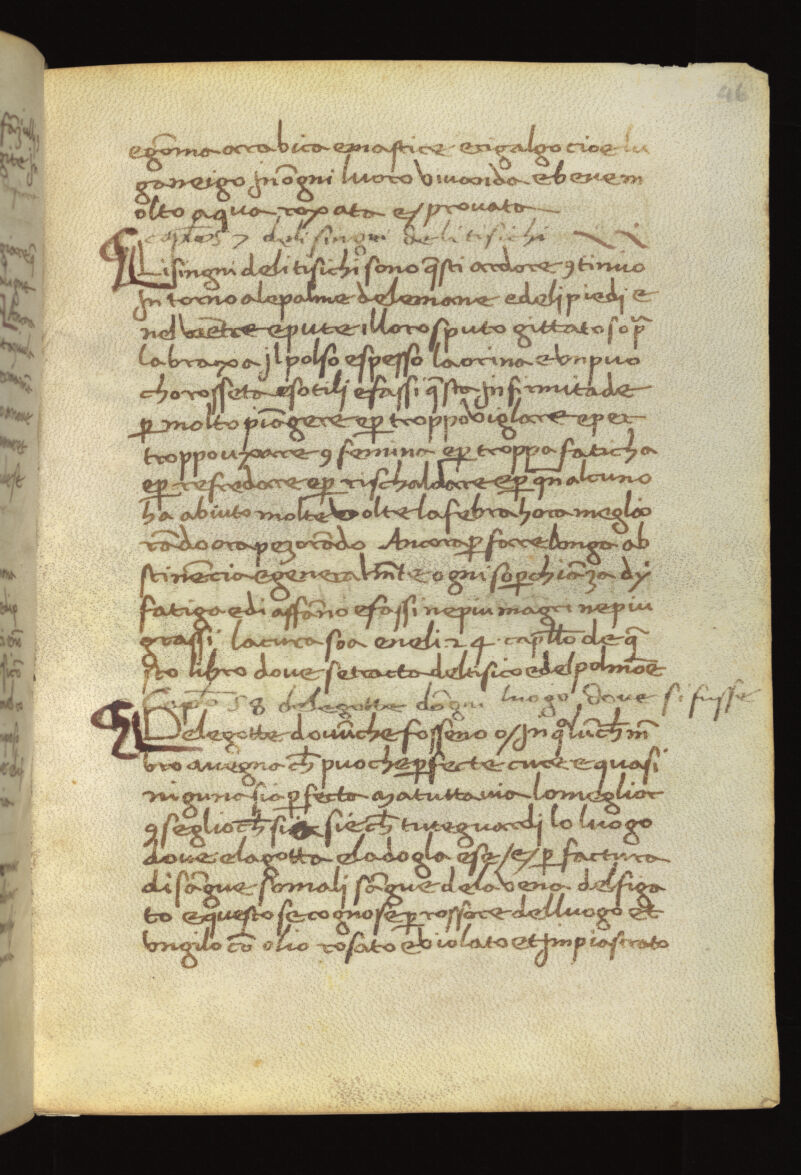 46
egõma arabica e mastice e rigalgo cioe lu
ganeigo Jn õgni luoro vivanda e beve m
olto aqua roxata e/ provata
capło 57 deli singni deli tisichi
Li singni deli tisichi sono q̃sti ardore 9tinuo
Jn torno a le palme dele mane e deli piedi e
nel ventre e pute il loro sputo gittato sop̃
la braxa jl polso e spesso la orina e un puo
cho rosseta e sotili e fassi q̃sta Jnfirmitade
ꝑ molto piãgere e ꝑ troppo viglare e per
troppo uxare 9 femina e ꝑ troppa faticha
e ꝑ refredare e ꝑ rischaldare e ꝑ qñ alcuno
ha abiuto molte volte la febra hora meglio
rãdo ora pezorãdo Ancora ꝑ farre longa ab
stinẽcia e generalm̃te ogni soꝑchiãza dy
fatiga e di affãno e fassi ne piu magri ne piu
grassi la cura soa e neli 24 capłlo de q̃
sto libro dove se tracta del tisico e del polmõe
Capło 58 dele gotte dõgni luogo dove si fusse
Dele gotte dovũche fosseno o/ Jn q̃lũch̃ mẽ
bro avegna ch̃ puoche ꝑfecte cure e quasi
niguna sia ꝑfecta ma tutta via lo meglior
9seglio ch̃ si sie ch̃ tu te guardi lo luogo
dove e la gotta e la dogla e se /e/ ꝑ factura
di sãgue somali sãgue dela vena del figa
to e questo se cognose ꝑ rossore del luogo et
vngilo cõ olio rosato e violato et Jmpiastrato